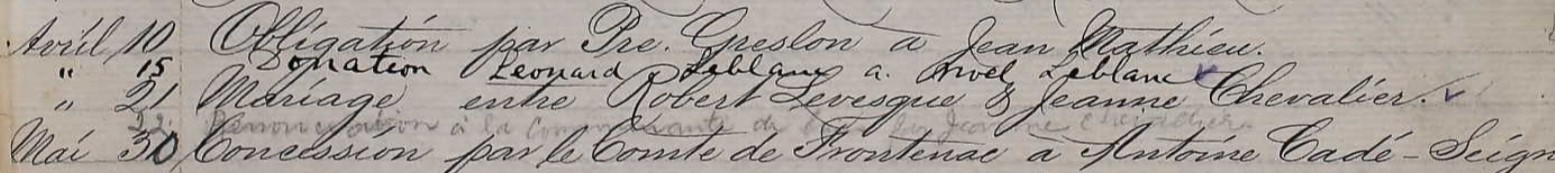 Avril 10 Obligation par Pre. Greslon a Jean Mathieu.
" 15 Donation Leonard Leblanc a. Noel Leblanc
" 21 Mariage entre Robert Levesque & Jeanne Chevalier.
22 Renonciation à la Communauté de par Jeanne Chevalier
Mai 30 Concession par le Comte de Frontenac a Antoine Cadé - Seign